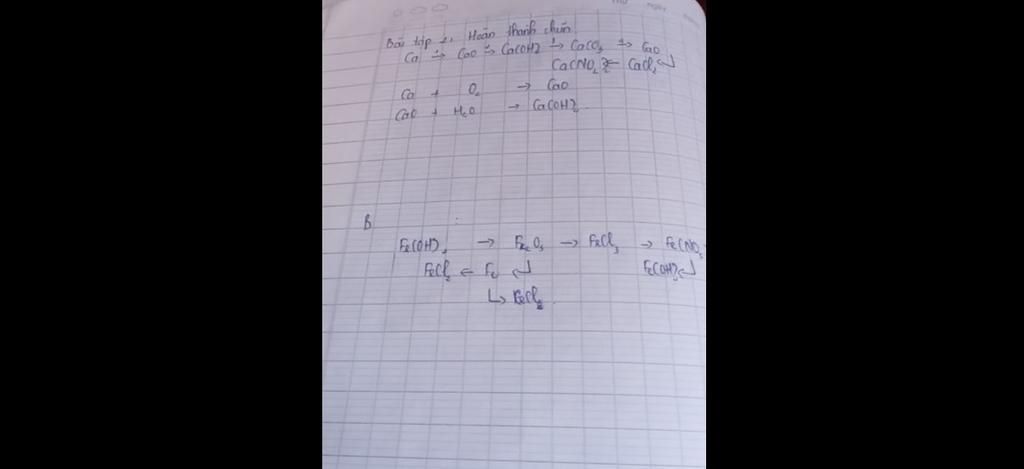 Bài tập 2. Hoàn thanh chuỗi
Ca → CaO → Ca(OH)2 → CaCO3 → CaO
Ca(NO3)2 ← CaCl2 ↲
Ca + O2 → CaO
CaO + H2O → Ca(OH)2
B
Fe(OH)3 → Fe2O3 → FeCl3 → Fe(NO3
FeCl2 ← Fe ↲ Fe(OH)3 ↲
↳ FeCl2